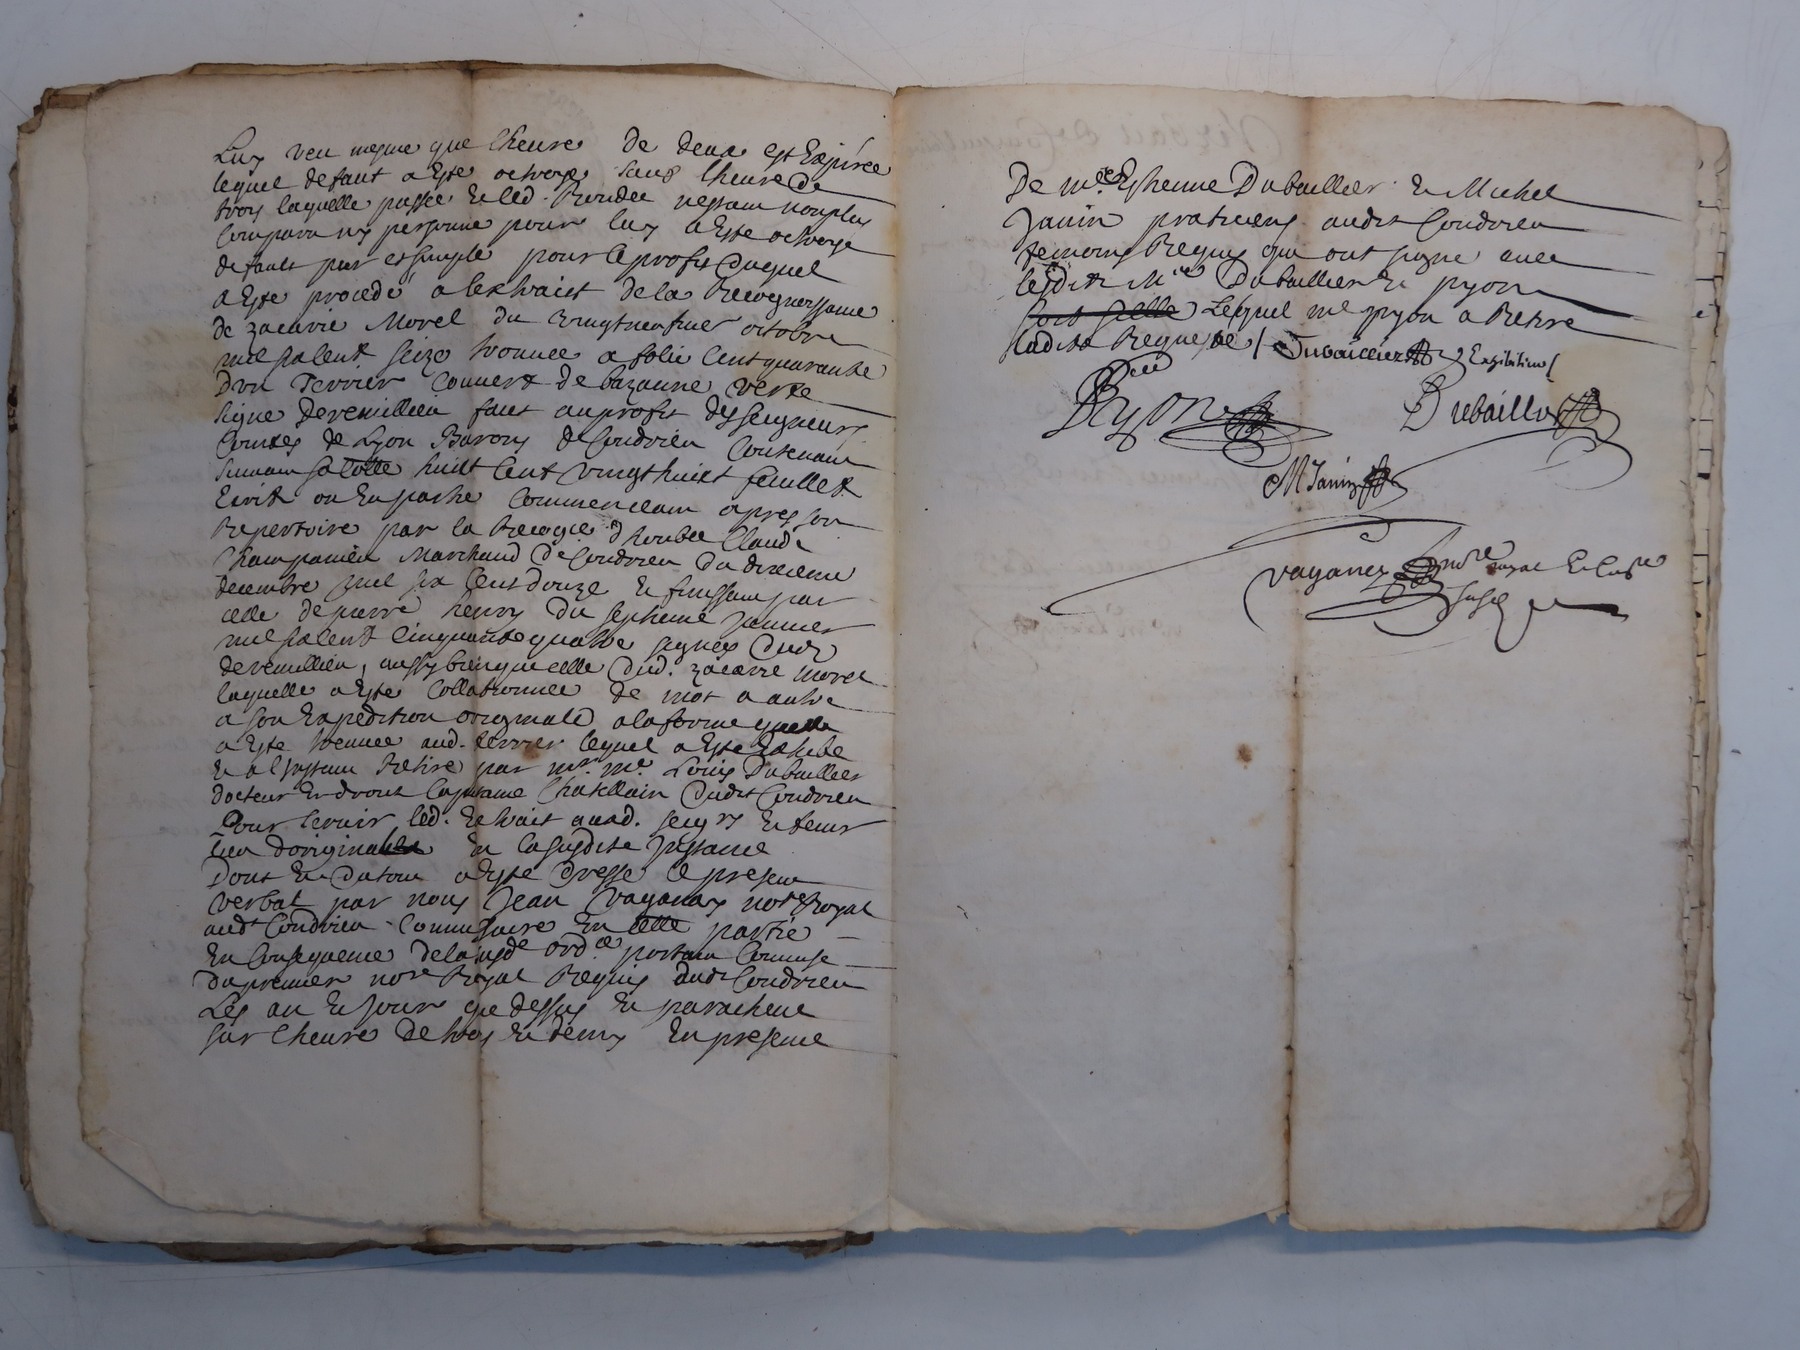 Luy veu mesme que lheure de deux est Expirée
lequel defaut a Esté octroyé sauf lheure de
trois laquelle passée et led. Rondee nestant non plus
Comparu ny personne pour luy a Esté octroyé
default pur et simple pour le profit duquel
a Esté procedé a lextraict de la Recognoissance
de zacarie Morel du vingtneufvie octobre
mil six cent seize trouvee a folio Cent quarante
Dun Terrier Couvert de bazanne verte
signe Deremillieu faict au profit des seigneurs
Comtes de Lyon Barons de Condrieu Contenant
suivant sa Cotte huict Cent vingt huict feuillet
Ecrit ou En partie Commenceant apres son
Repertoire par la Recogce dhonble Claude
Champanieu Marchand de Condrieu du dixieme
decembre mil six Cent douze et finissant par
celle de pierre henry du septieme Janvier
mil six cent Cinquante quatre signés dud
deremillieu, aussy bien que celle dud. zacarie morel
laquelle a Esté Collationnee de mot a autre
a son Expedition originale a la forme quelle
a Esté trouvee aud. terrier lequel a Esté Exhibé
et a linstant Retiré par mr. me. Louis Dubaillier
docteur En droit Capitaine Chatellain dudit Condrieu
Pour servir led. Extrait ausd. seigrs et tenir
lieu doriginal En la susdite Instance
Dont et du tout a Esté dressé le present
verbal par nous Jean Vaganay notre Royal
audt Condrieu Commissaire En cette partie
En Consequence de la susde ordce portant Commise
Du premier notre Royal Requis dudt Condrieu
Les an et Jour que dessus et parachevé
sur lheure de trois et demy En presence
De me. Estienne Dubaillier et Michel
Janin praticiens audit Condrieu
temoins Requis qui ont signe avec
lesdits Mre Dubaillier et pyon
Lequel me pyon a Retiré
ladite Reque Dubaillier Exhibition
Pyon Dubaillier
M Janin
Vaganay